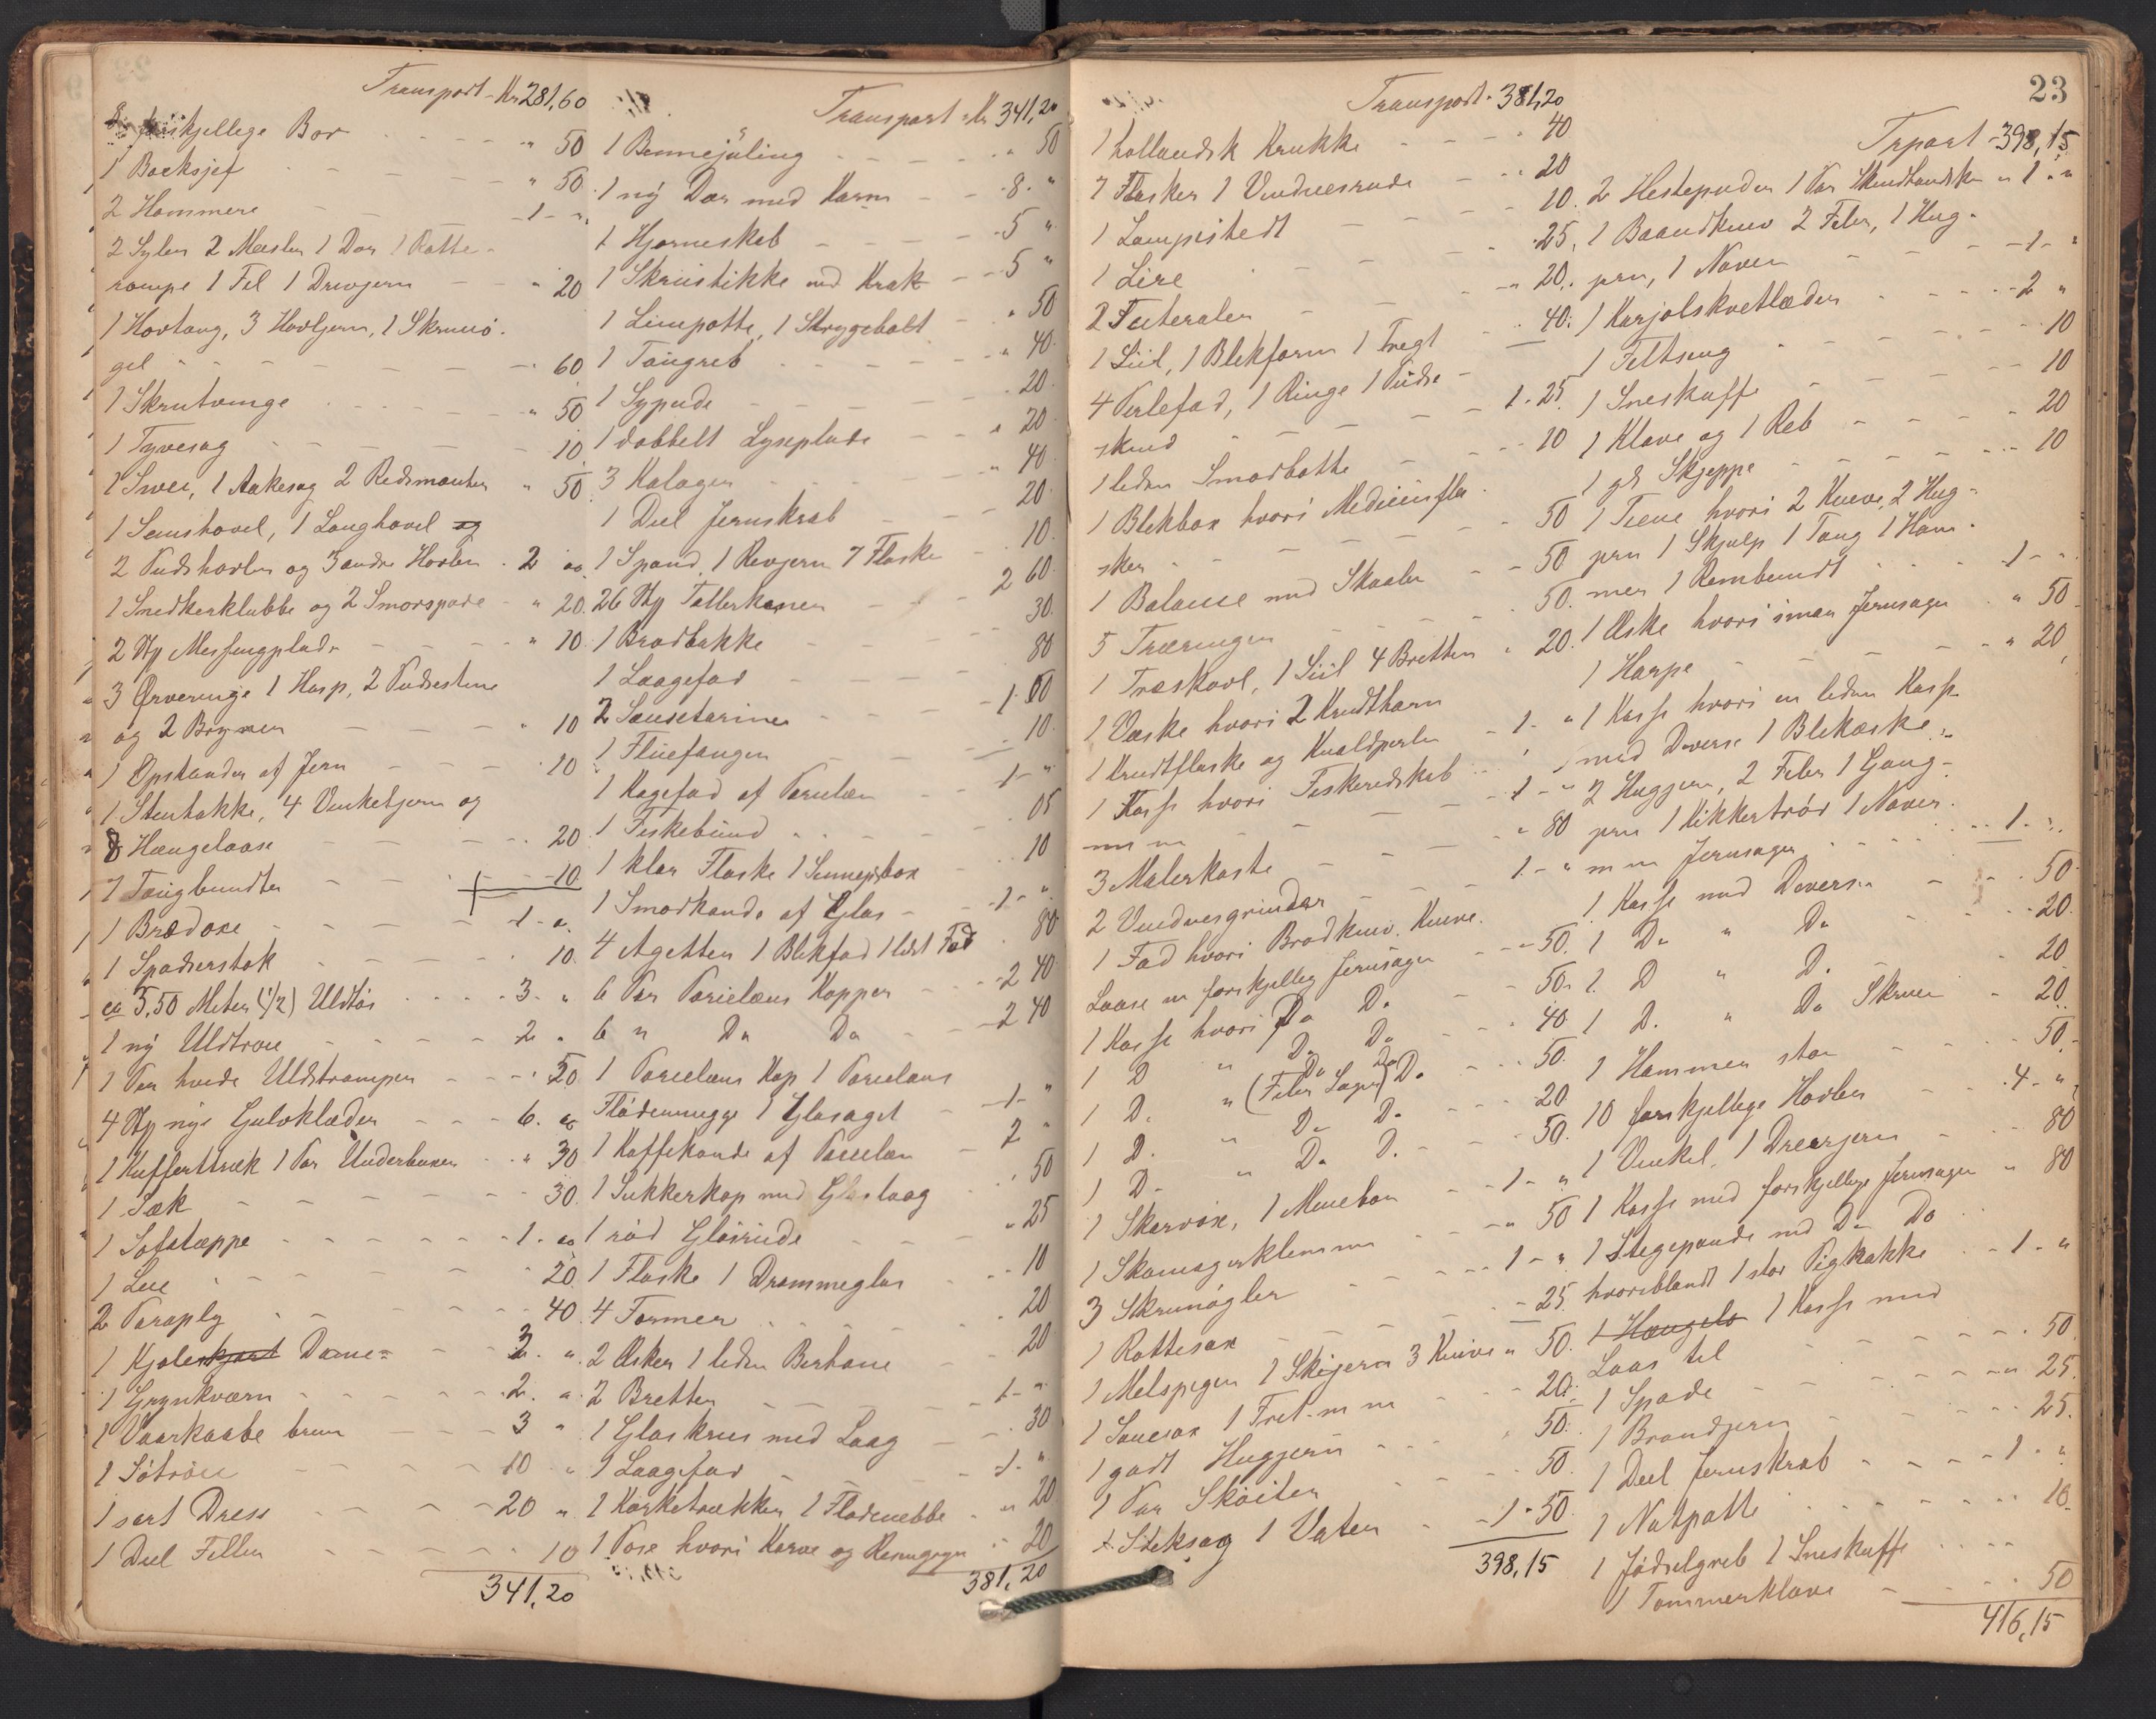 Transport - Kr 281,60
8 forskjellige Bor - - - " 50
1 Bocksjef - - - " 50
2 Hammere - - - 1 - "
2 Syler 2 Meisler 1 Dor 1 Rotte-
rompe 1 Fil 1 Drevjern - - " 20
1 Hovtang, 3 Hovljern, 1 Skrunö-
gel - - - " 60
1 Skrutvinge - - - " 50
1 Tyvesag - - - 10
1 Svei, 1 Aakesag 2 Redsmanter " 50
1 Semshøvel, 1 Langhøvel og
2 Pudshøvler og 3 andre Høvler . 2 00
1 Snedkerklubbe og 2 Smørspade - " 20
2 Stk Messingplade - - " 10
3 Ørveringe 1 Hasp, 2 Pudsestene
og 2 Bryner - - - " 10
1 Opstander af Jern - - - 10
1 Stenhakke, 4 Vinkeljern og
8 Hængelaase - - - 20
7 Tangbundter - - - 10
1 Brødøxe - - - 1 - "
1 Spadserstok - - - 10
ca 5,50 Meter (1/2) Uldtöi - - 3 - "
1 ny Uldtrøie - - - 2 "
1 Par hvide Uldstrømper - - " 50
4 Stk nye Gulvklæder - - - 6. 00
1 Kufferttræk 1 Par Underbuxer " 30
1 Sæk - - - 30
1 Sofatæppe - - - 1. 00
1 Lue - - - 20
2 Paraply - - - 40
1 Kjoleskjørt Dame= - - 2. "
1 Grynkværn - - - 2. "
1 Vaarkaabe brun - - - 3 "
1 Sötröie - - - 10 "
1 sort Dress - - - 20 "
1 Deel Filler - - - 10
341,20
Transport - Kr 341,20
1 Bennejuling - - - " 50
1 ny Dør med Karm - - 8 "
1 Hjørneskab - - - 5 "
1 Skruestikke med Krak - - 5 "
1 Limpotte, 1 Strygebolt - " 50
1 Tangreb - - - " 40
1 Sypude - - - 20
1 dobbelt Lyseplade - - " 20
3 Kalager - - - " 40
1 Deel Jernskrab - - - 20
1 Spand, 1 Revjern 7 Flaske - 10
26 Stk Tallerkener - - - 2 60
1 Brødbakke - - - 30
1 Laagefad - - - 80
2 Sauseteriner - - - 1.00
1 Fluefanger - - - 10
1 Kagefad af Porcelæn - - 1 - "
1 Fiskebund - - - 05
1 klar Flaske 1 Sennepsbox - - 10
1 Smørkande af Glas - - 1 - "
4 Asjetter 1 Blikfad 1 lidet Fad . 80
6 Par Porcelæns Kopper - - 2 40
6 " Do Do - - 2 40
1 Porcelæns Kop 1 Porcelæns
Flödemugge 1 Glasaget - 1 - "
1 Kaffekande af Porcelæn - 2 "
1 Sukkerkop med Glaslaag . 50
1 rød Glasrude - - - " 25
1 Flaske 1 Drammeglas - - 10
4 Former - - - 20
2 Æsker 1 liden Berhane - - 20
2 Bretter - - - 1 - "
1 Glaskrus med Laag - - 30
1 Laagefad - - - 1. "
1 Korketrækker 1 Flødenebbe - " 20
1 Pose hvori Karve og Rensegryn - 20
381,20
Transport - 381,20
1 hollandsk Krukke - - - 40
7 Flasker 1 Vinduesrude - - 20
1 Lampestedt - - - 10
1 Lire - - - 25
2 Futeraler - - - 20
1 Siil, 1 Blikform 1 Tregt - 40
4 Perlefad, 1 Ringe 1 Pudse-
skind - - - 1.25
1 liden Smørbøtte - - - 10
1 Blikbox hvori Medicinfla-
sker - - - 50
1 Balance med Skaaler - - 50
5 Træringer - - - 50
1 Træskavl, 1 Siil 4 Bretter " 20
1 Væske hvori 2 Krudthorn
1 Krudtflaske og Knaldperler - 1 - "
1 Kasse hvori Fiskeredskab
m m - - - 1 - "
3 Malerkoste - - - " 80
2 Vinduesgrinder - - - 1 - "
1 Fad hvori Brødkniv. Knive.
Laase m forskjellig Jernsager - - 50
1 Kasse hvori Do Do - - 50
1 D " Do Do - - 40
1 D. " (Filer Sager) Do - - 50
1 D. " Do D. - - 20
1 D- " D. D. - - 50
1 Skarvöx, 1 Minebor - - 1 - "
1 Skomagerklemme - - " 50
3 Skrunøgler - - - 1 - "
1 Rottesax - - - 25
1 Melspeger 1 Skijern 3 Knive " 50
1 Sauesax 1 Fret-m m - - 20
1 godt Huggjern - - - 50
1 Par Sköiter - - - 50
1 Stiksag 1 Vater - - 1 - 50
398,15
23
Trport - 398,15
2 Hesteputer 1 Par Skindhandsker - 1 - "
1 Baandkniv 2 Filer, 1 Hug-
jern, 1 Naver - - - 1 - "
1 Karjolskvetlæder - - - 2 "
1 Feltseng - - - 10
1 Sneskuffe - - - 10
1 Klave og 1 Reb - - - 20
1 gl Skjeppe - - - 10
1 Teine hvori 2 Knive, 2 Hug-
jern 1 Skjulp 1 Tang 1 Ham-
mer 1 Rembundt - - - 1 - "
1 Æske hvori smaa Jernsager " 50
1 Harpe - - - " 20
1 Kasse hvori en liden Kasse
med Diverse 1 Blikæske,
2 Huggjern, 2 Filer 1 Gang-
jern 1 Kikkertrør 1 Naver
m m Jernsager - - - 1 - "
1 Kasse med Diverse - - 50
1 Do " Do - - 20
1 D " D. - - 20
1 D. " Do Skruer - 20
1 Hammer stor - - - 50
10 forskjellige Høvler - - 4 - "
1 Vinkel, 1 Dreierjern - - 80
1 Kasse med forskjellige Jernsager " 80
1 Stegepande med Do Do
hvoriblandt 1 stor Pigkakke - 1 - "
1 Hængelo 1 Kasse med
Laas til - - - 50
1 Spade - - - " 25
1 Brandjern - - - 25
1 Deel Jernskrab - - - 1 - "
1 Natpotte - - - 10
1 Jødselgreb 1 Sneskuffe - -
1 Tømmerklave - - - 50
416,15